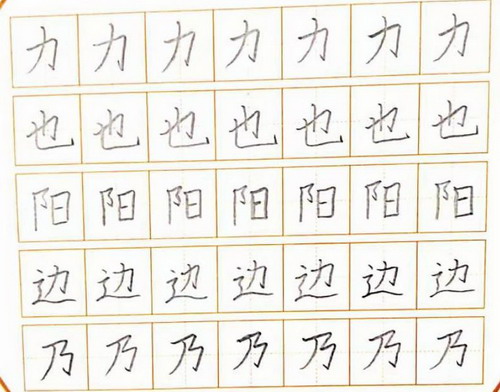 力力力力力力力
也也也也也也也
阳阳阳阳阳阳阳
边边边边边边边
乃乃乃乃乃乃乃